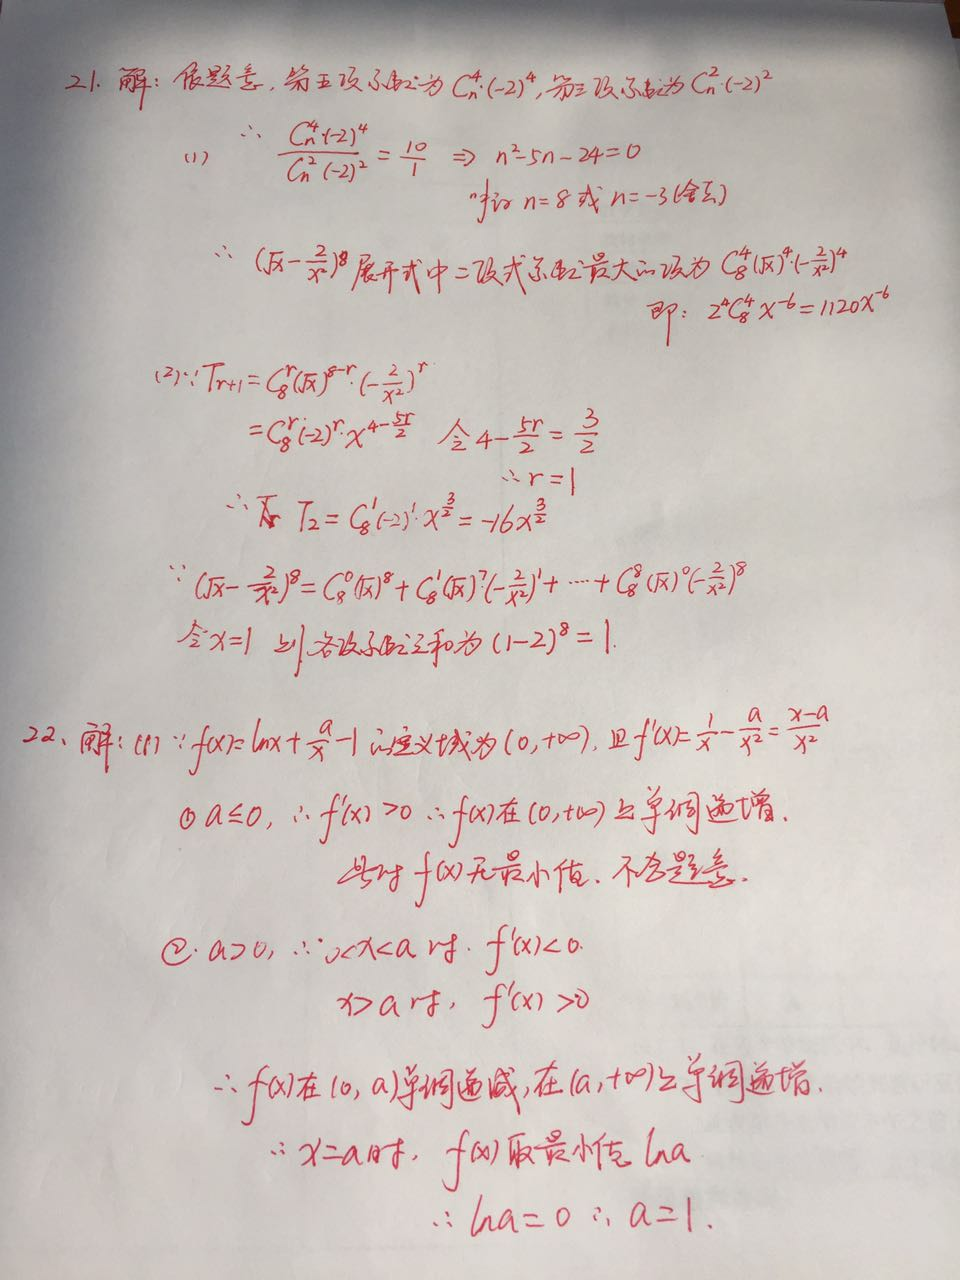 21. 解: 依题意, 第五项系数为 Cₙ⁴·(-2)⁴, 第三项系数为 Cₙ²·(-2)²
(1) ∴ Cₙ⁴·(-2)⁴ / Cₙ²(-2)² = 10/1 ⇒ n²-5n-24=0
解得 n=8 或 n=-3(舍去)
∴ (√x - 2/x²)⁸ 展开式中二项式系数最大的项为 C₈⁴(√x)⁴·(-2/x²)⁴
即: 2⁴C₈⁴x⁻⁶=1120x⁻⁶
(2) ∵ Tr+1=C₈ʳ(√x)⁸⁻ʳ·(-2/x²)ʳ
=C₈ʳ·(-2)ʳ·x^(4-5r/2) 令 4-5r/2=3/2
∴ r=1
∴ T₂=C₈¹(-2)¹·x^(3/2)=-16x^(3/2)
∵ (√x-2/x²)⁸=C₈⁰(√x)⁸+C₈¹(√x)⁷(-2/x²)¹+····+C₈⁸(√x)⁰(-2/x²)⁸
令x=1 则各项系数之和为 (1-2)⁸=1.
22、解: (1) ∵ f(x)=lnx+a/x-1 的定义域为 (0,+∞), 且 f′(x)=1/x-a/x²=(x-a)/x²
① a≤0, ∴ f′(x)>0 ∴ f(x)在(0,+∞)上单调递增.
此时 f(x)无最小值. 不合题意.
②. a>0, ∴ 0<x<a 时. f′(x)<0.
x>a 时, f′(x)>0
∴ f(x)在(0, a)单调递减, 在(a,+∞)上单调递增.
∴ x=a时, f(x)取最小值 lna
∴ lna=0 ∴ a=1.